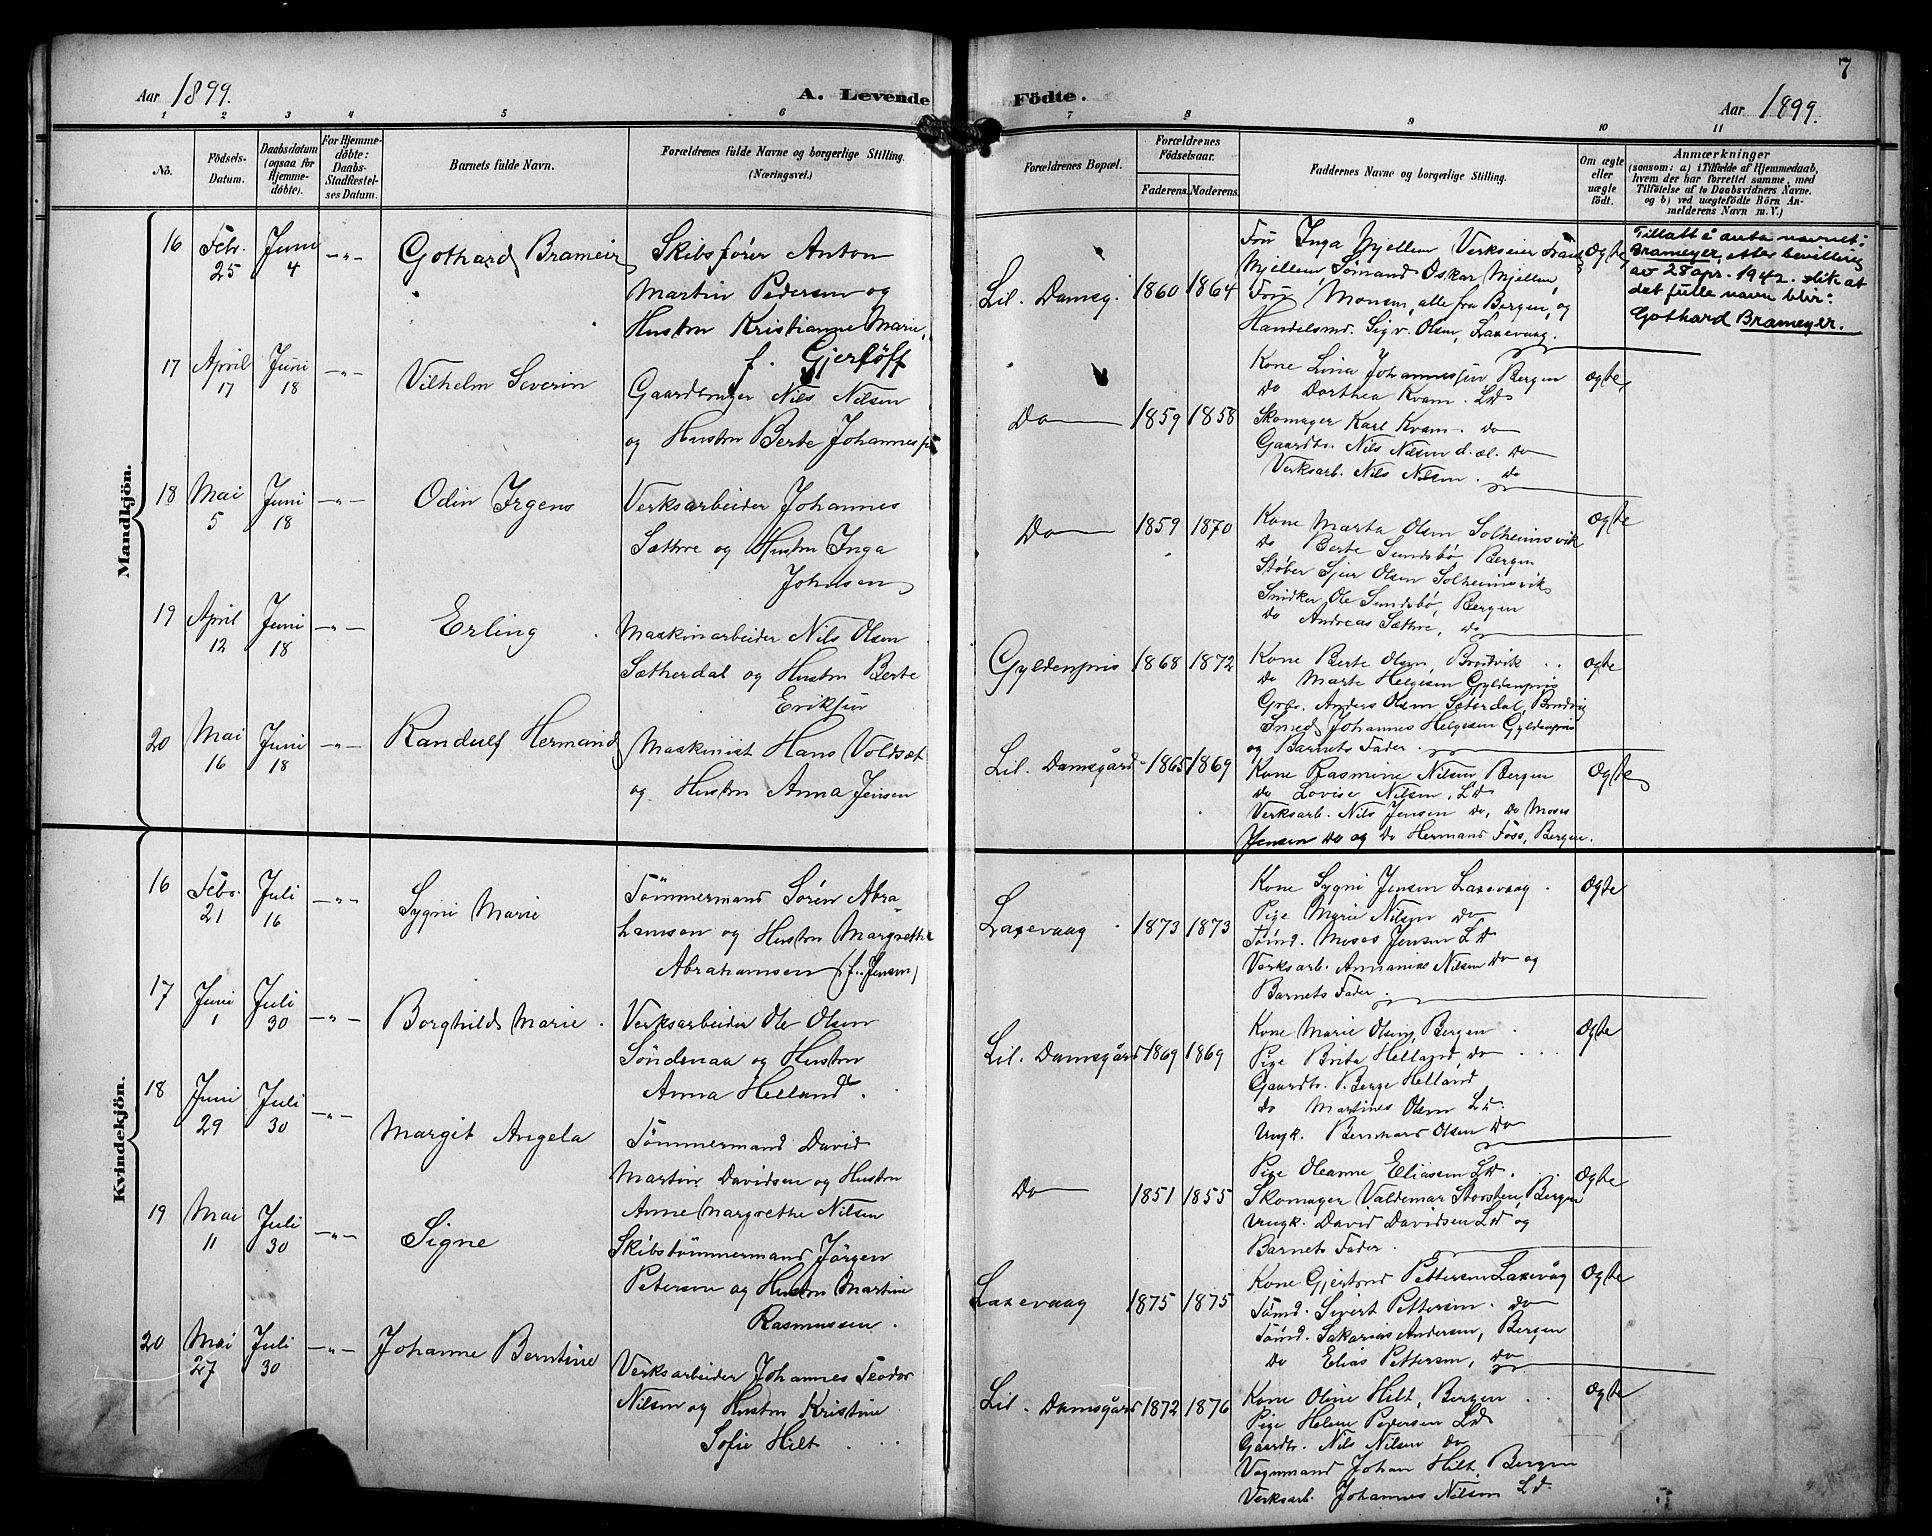 Aar 1899.
A. Levende Födte.
7
Aar 1899.
1 2 3 4 5 6 7 8 9 10 11
No.
Födsels-
Datum.
Daabsdatum
(ogsaa for
Hjemme-
döbte).
For Hjemme-
döbte:
Daabs-
Stadfæstel-
ses Datum.
Barnets fulde Navn.
Forældrenes fulde Navne og borgerlige Stilling.
(Næringsvei.)
Forældrenes Bopæl.
Forældrenes
Födselsaar.
Faderens. Moderens.
Faddernes Navne og borgerlige Stilling.
Om ægte
eller
uægte
födt.
Anmærkninger
(saasom: a) i Tilfælde af Hjemmedaab,
hvem der har forrettet samme, med
Tilföielse af to Daabsvidners Navne.
og b) ved uægtefödte Börn An-
melderens Navn m. V.)
Mandkjön.
16
Febr.
25
Juni
4
-"-
Gothard Brameir
Skibsfører Anton
Martin Pedersen og
Hustru Kristianne Marie,
f. Gjerløff
Lil. Damsg.
1860 1864
Fru Inga Mjellem Verkseier Frantz
Mjellem, Sømand Oskar Mjellem,
Fru Monsen, alle fra Bergen, og
Handelsmd. Sigv. Olsen, Laxevaag.
Ægte
Tillatt å anta navnet:
Brameyer, etter bevilling
av 28 apr. 1942. slik at
det fulle navn blir:
Gothard Brameyer.
17
April
17
Juni
18
-"-
Vilhelm Severin
Gaardbruger Nils Nilsen
og Hustru Berte Johannes
Do
1859 1858
Kone Lina Johannessen Bergen
Do Dorthea Kvam. Ld
Skomager Karl Kvam. do
Gaardbr. Nils Nilsen d. æl. Do
Verksarb. Nils Nilsen. do
Ægte
18
Mai
5
Juni
18
-"-
Odin Irgens
Verksarbeider Johannes
Sæthre og Hustru Inga
Johnsen
Do
1859 1870
Kone Marta Olsen Solheimsvik
Do Berte Sundsbø Bergen
Støber Sjur Olsen Solheimsvik
Snidker Ole Sundsbø, Bergen
Do Andreas Sæthre, do
Ægte
19
April
12
Juni
18
-"-
Erling
Maskinarbeider Nils Olsen
Sætherdal og Hustru Berte
Eriksen
Gyldenpris
1868 1872
Kone Berte Olsen, Brudvik
Do Marte Helgesen Gyldenpris
Grbr. Anders Olsen Sæterdal, Brudvig
Smed Johannes Helgesen Gyldenpris
og Barnets Fader.
Ægte
20
Mai
16
Juni
18
-"-
Randulf Hermand
Maskinist Hans Voldsæt
og Hustru Anna Jensen
Lil. Damsgård
1865 1869
Kone Rasmine Nilsen Bergen
Do Lovise Nilsen, Ld
Verksarb. Nils Jensen Do, Do Moses
Jensen Do og Do Hermand Foss, Bergen.
Ægte
Kvindekjön.
16
Febr.
21
Juli
16
-"-
Sygni Marie
Tömmermand Sören Abra-
hamsen og Hustru Margrethe
Abrahamsen (f. Jensen)
Laxevaag
1873 1873
Kone Sygni Jensen Laxevaag
Pige Marie Nilsen Do
Tömd. Moses Jensen Ld
Verksarb. Annanias Nilsen Do og
Barnets Fader.
Ægte
17
Juni
1
Juli
30
-"-
Borghild Marie
Verksarbeider Ole Olsen
Söndenaa og Hustru
Anna Helland
Lil. Damsgård
1869 1869
Kone Marie Olsen, Bergen
Pige Brita Helland do
Gaardbr. Berge Helland
Do Martines Olsen Ld.
Ungk. Bernhard Olsen Do
Ægte
18
Juni
29
Juli
30
-"-
Margit Angela
Tömmermand David
Martin Davidsen og Hustru
Anne Margrethe Nilsen
Do
1851 1855
Pige Oleanne Eliasen Ld.
Skomager Valdemar Torsten, Bergen
Ungk. David Davidsen Ld og
Barnets Fader.
Ægte
19
Mai
11
Juli
30
-"-
Signe
Skibstömmermand Jörgen
Petersen og Hustru Martine
Rasmussen.
Laxevaag
1875 1875
Kone Gjertrud Pettersen Laxevåg
Tömd. Sivert Pettersen. do
Tömd. Sakarias Andersen, Bergen
Do Elias Pettersen, do
Ægte
20
Mai
27
Juli
30
-"-
Johanne Berntine
Verksarbeider Johannes Teodor
Nilsen og Hustru Kristine
Sofie Hilt
Lil. Damsgård
1872 1876
Kone Oline Hilt, Bergen
Pige Helene Pedersen Ld
Gaardbr. Nils Nilsen do
Vognmand Johan Hilt, Bergen
Verksarb. Johannes Nilsen Ld.
Ægte